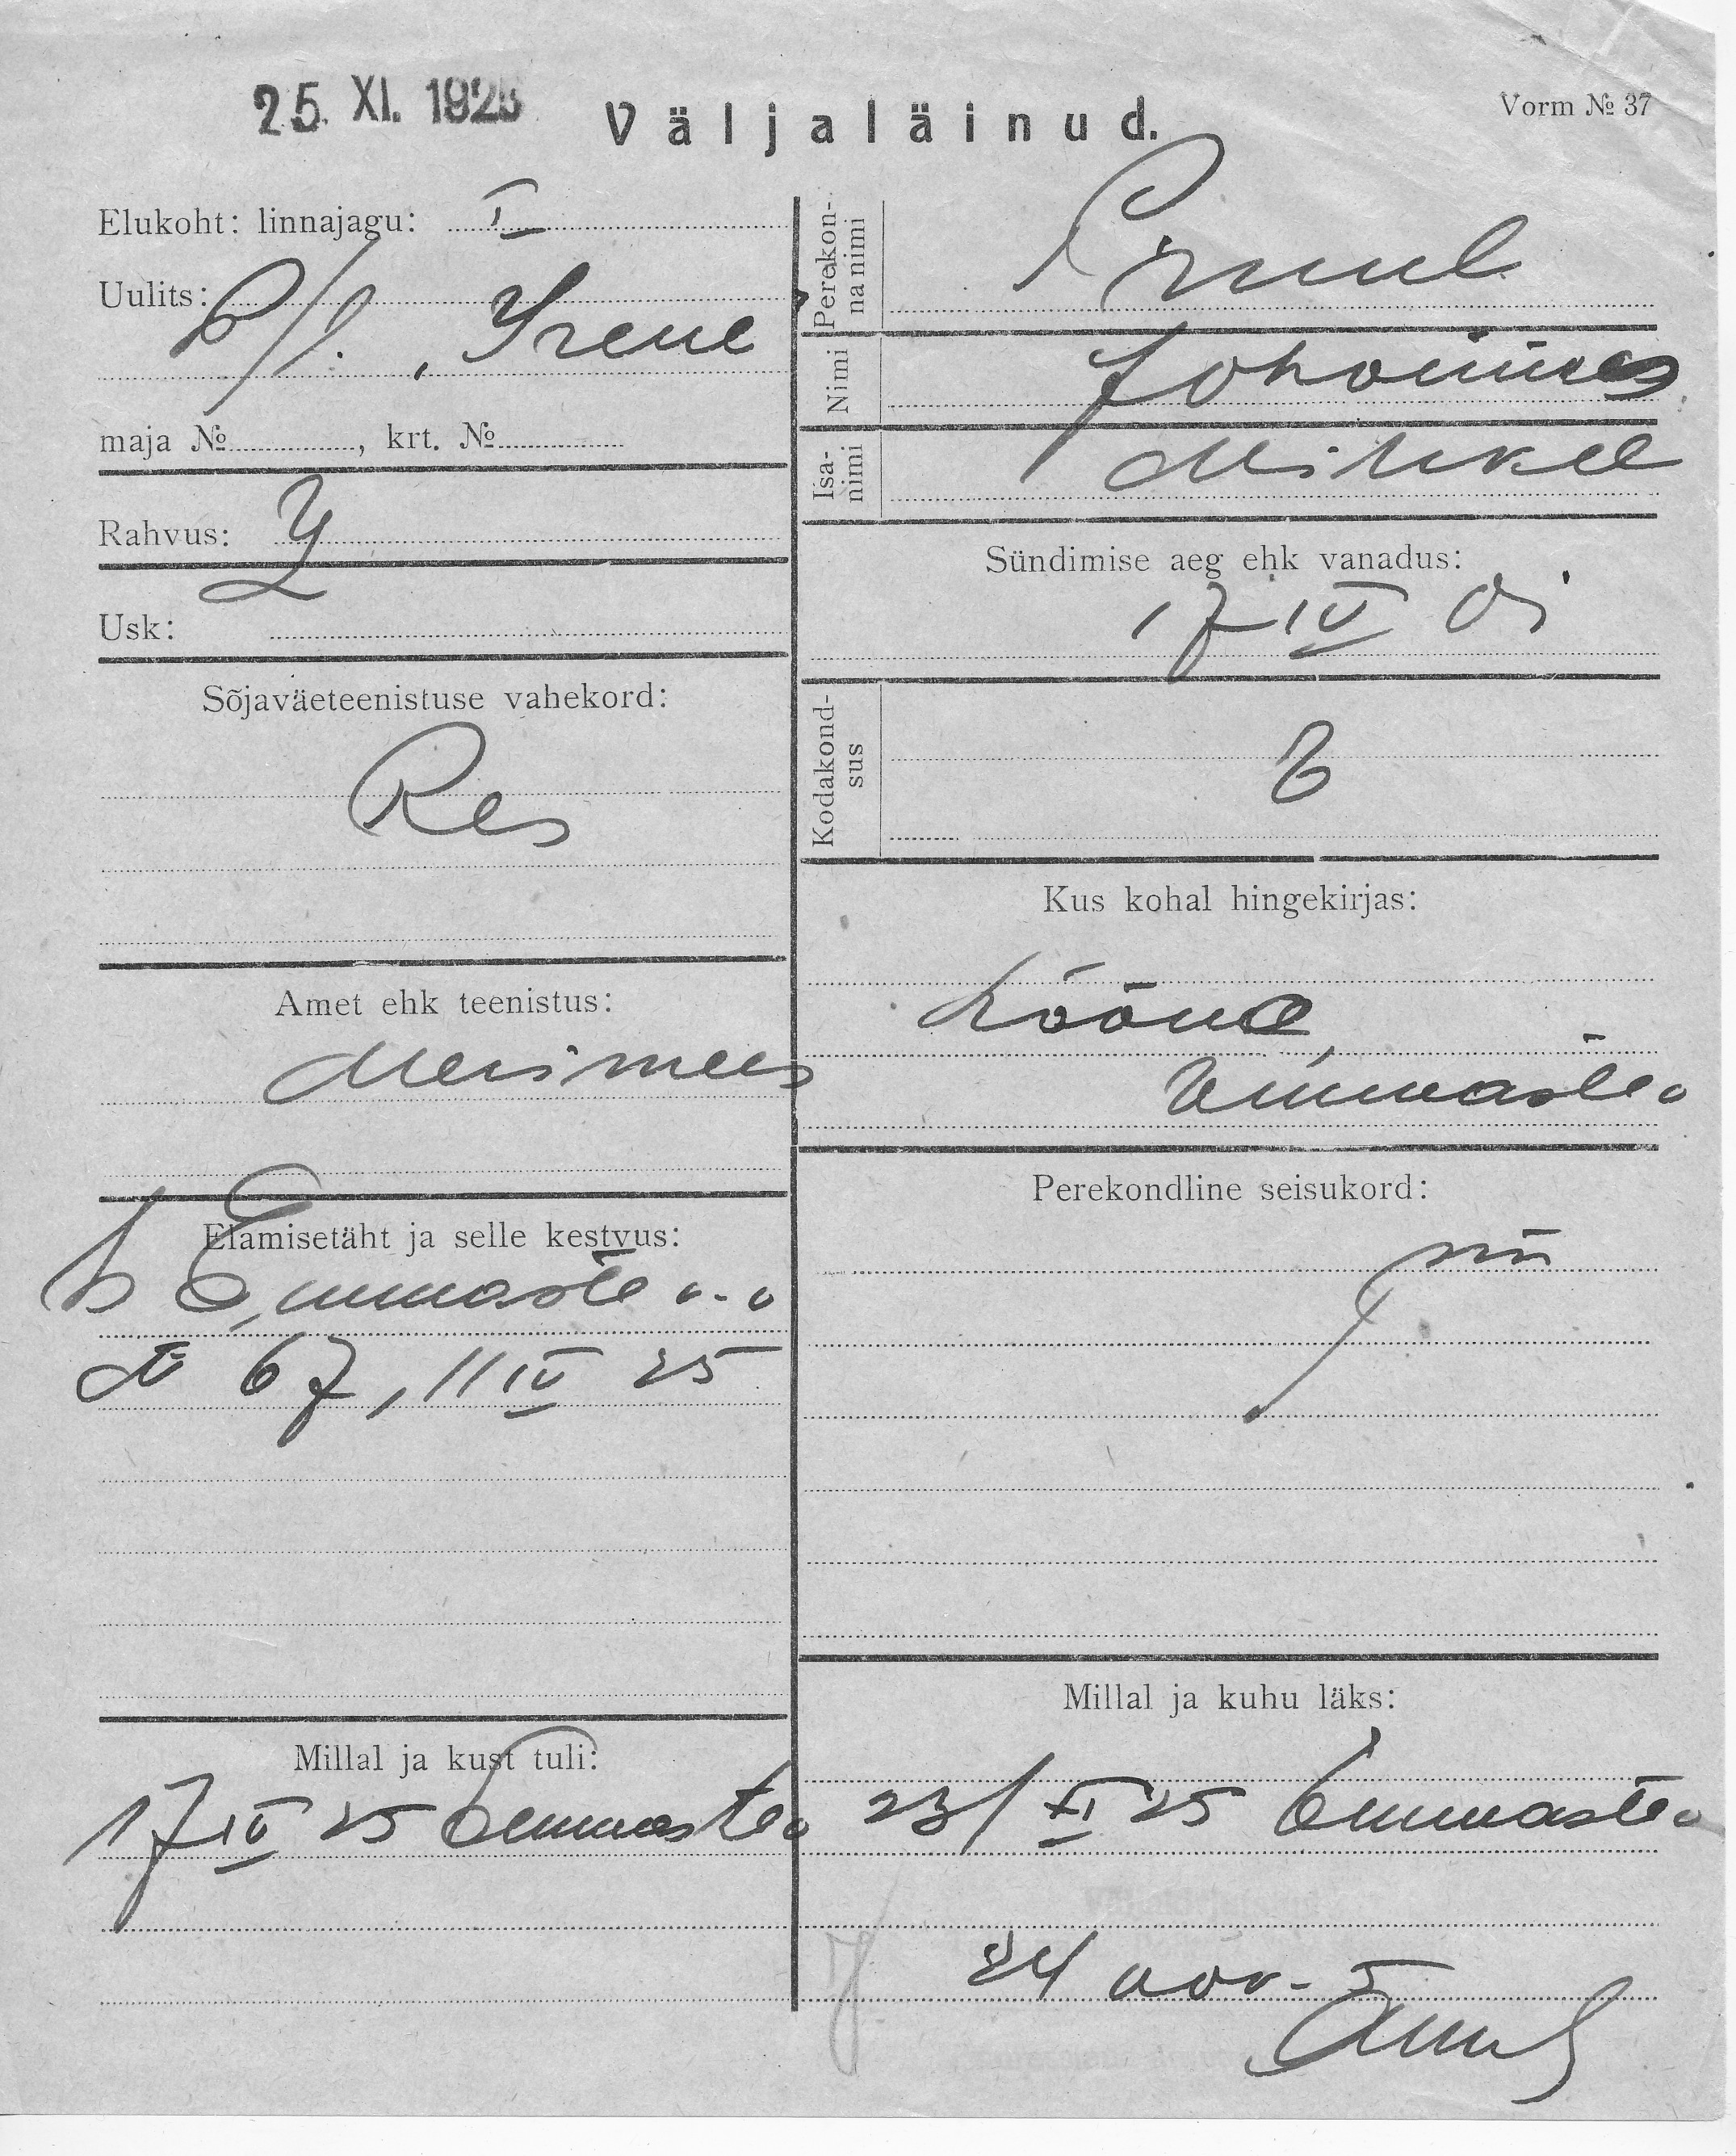 25. XI. 1925
Väljaläinud.
Vorm № 37
Elukoht: linnajagu: I
Uulits: P/l. , Irene
maja № , krt. №
Rahvus:
Usk:
Sõjaväeteenistuse vahekord:
Res
Amet ehk teenistus:
Meremees
Elamisetäht ja selle kestvus:
Emmaste v.-v
№ 67, 11 IV 25
Millal ja kust tuli:
17 IV 25 Emmaste v
Perekon-
na nimi
Pruul
Nimi
Johannes
Isa-
nimi
Mihkel
Sündimise aeg ehk vanadus:
17 IV 01
Kodakond-
sus
E
Kus kohal hingekirjas:
Lääne,
Emmaste v
Perekondline seisukord:
Millal ja kuhu läks:
23/XI 25 Emmaste v
24 nov. 5